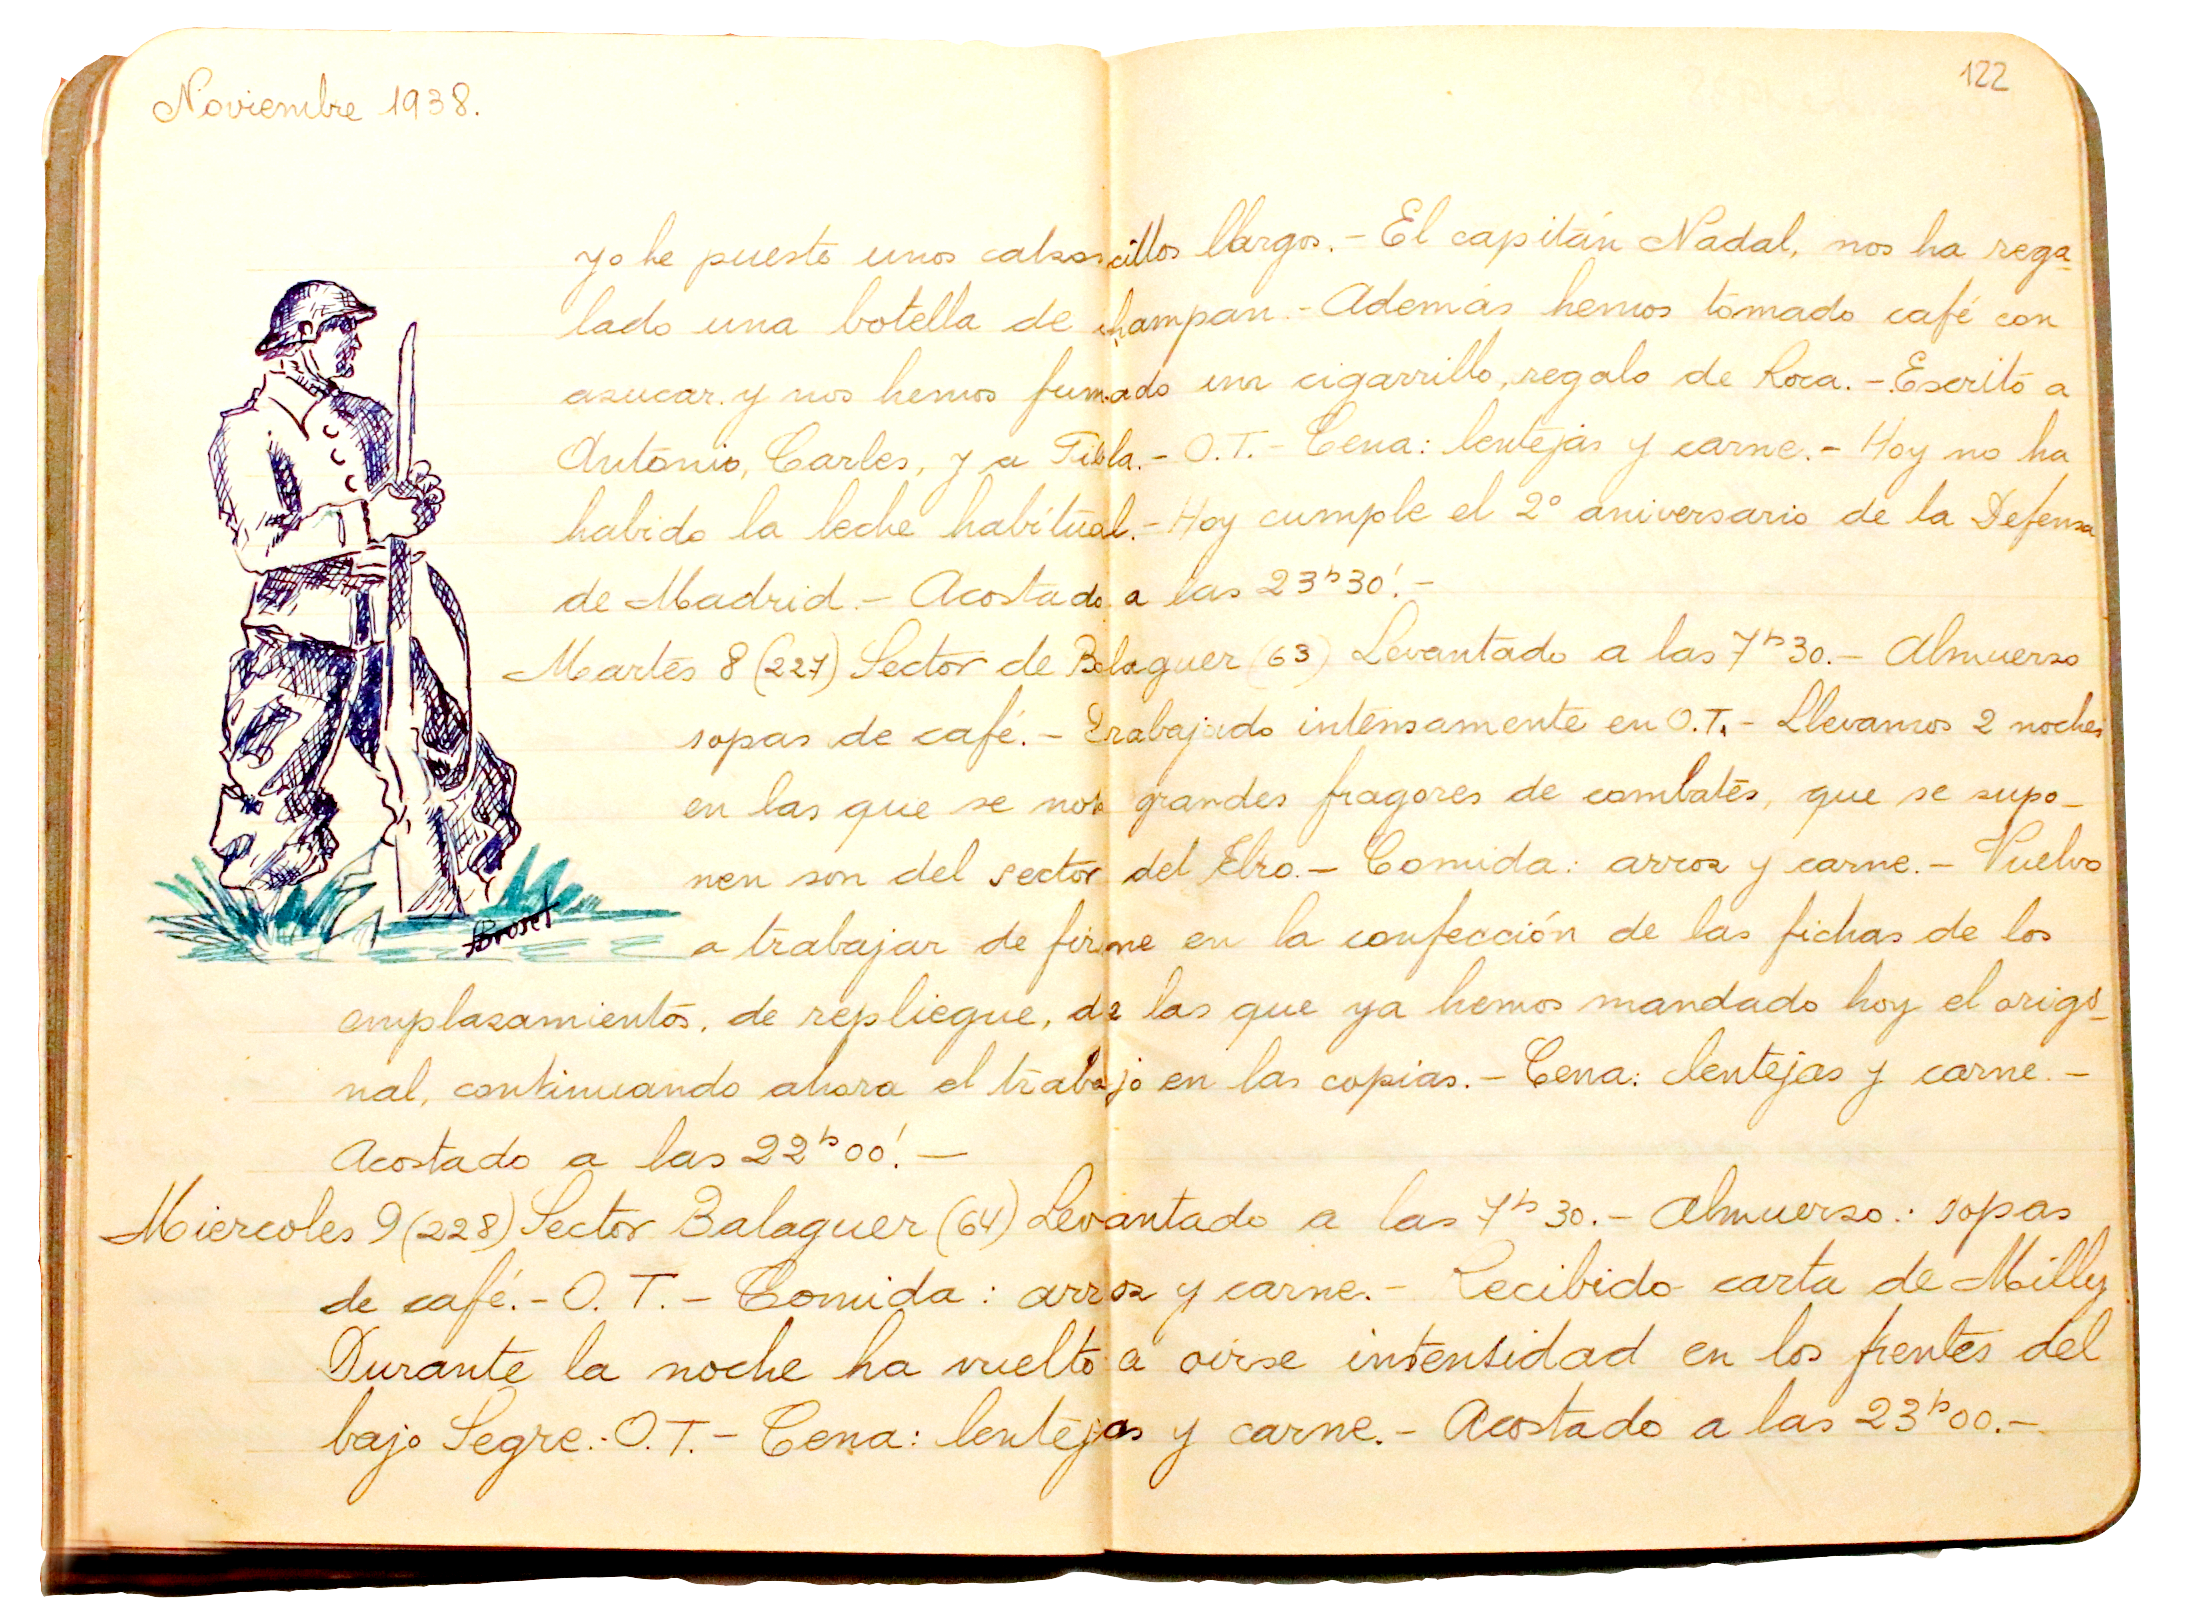 Noviembre 1938.
122
yo he puesto unos calsoncillos llargos.- El capitán Nadal, nos ha rega-
lado una botella de champan.- Además hemos tomado café con
asucar. y nos hemos fumado un cigarrillo, regalo de Roca.- Escrito a
Antonio, Carles, y a Tibla.- O.T.- Cena: lentejas y carne.- Hoy no ha
habido la leche habitual.- Hoy cumple el 2º aniversario de la Defensa
de Madrid.- Acostado a las 23h30'.-
Martes 8 (227) Sector de Balaguer (63) Levantado a las 7h30.- Almuerso
sopas de café.- Trabajado intensamente en O.T.- Llevamos 2 noches
en las que se nota grandes fragores de combates, que se supo-
nen son del sector del Ebro.- Comida: arros y carne.- Vuelvo
a trabajar de firme en la confección de las fichas de los
Broset
emplasamientos, de repliegue, de las que ya hemos mandado hoy el origi-
nal, continuando ahora el trabajo en las copias.- Cena: lentejas y carne.-
Acostado a las 22h00'.-
Miercoles 9 (228) Sector Balaguer (64) Levantado a las 7h30.- Almuerso: sopas
de café.- O.T.- Comida: arros y carne.- Recibido carta de Milly
Durante la noche ha vuelto a oirse intensidad en los frentes del
bajo Segre.- O.T.- Cena: lentejas y carne.- Acostado a las 23h00.-